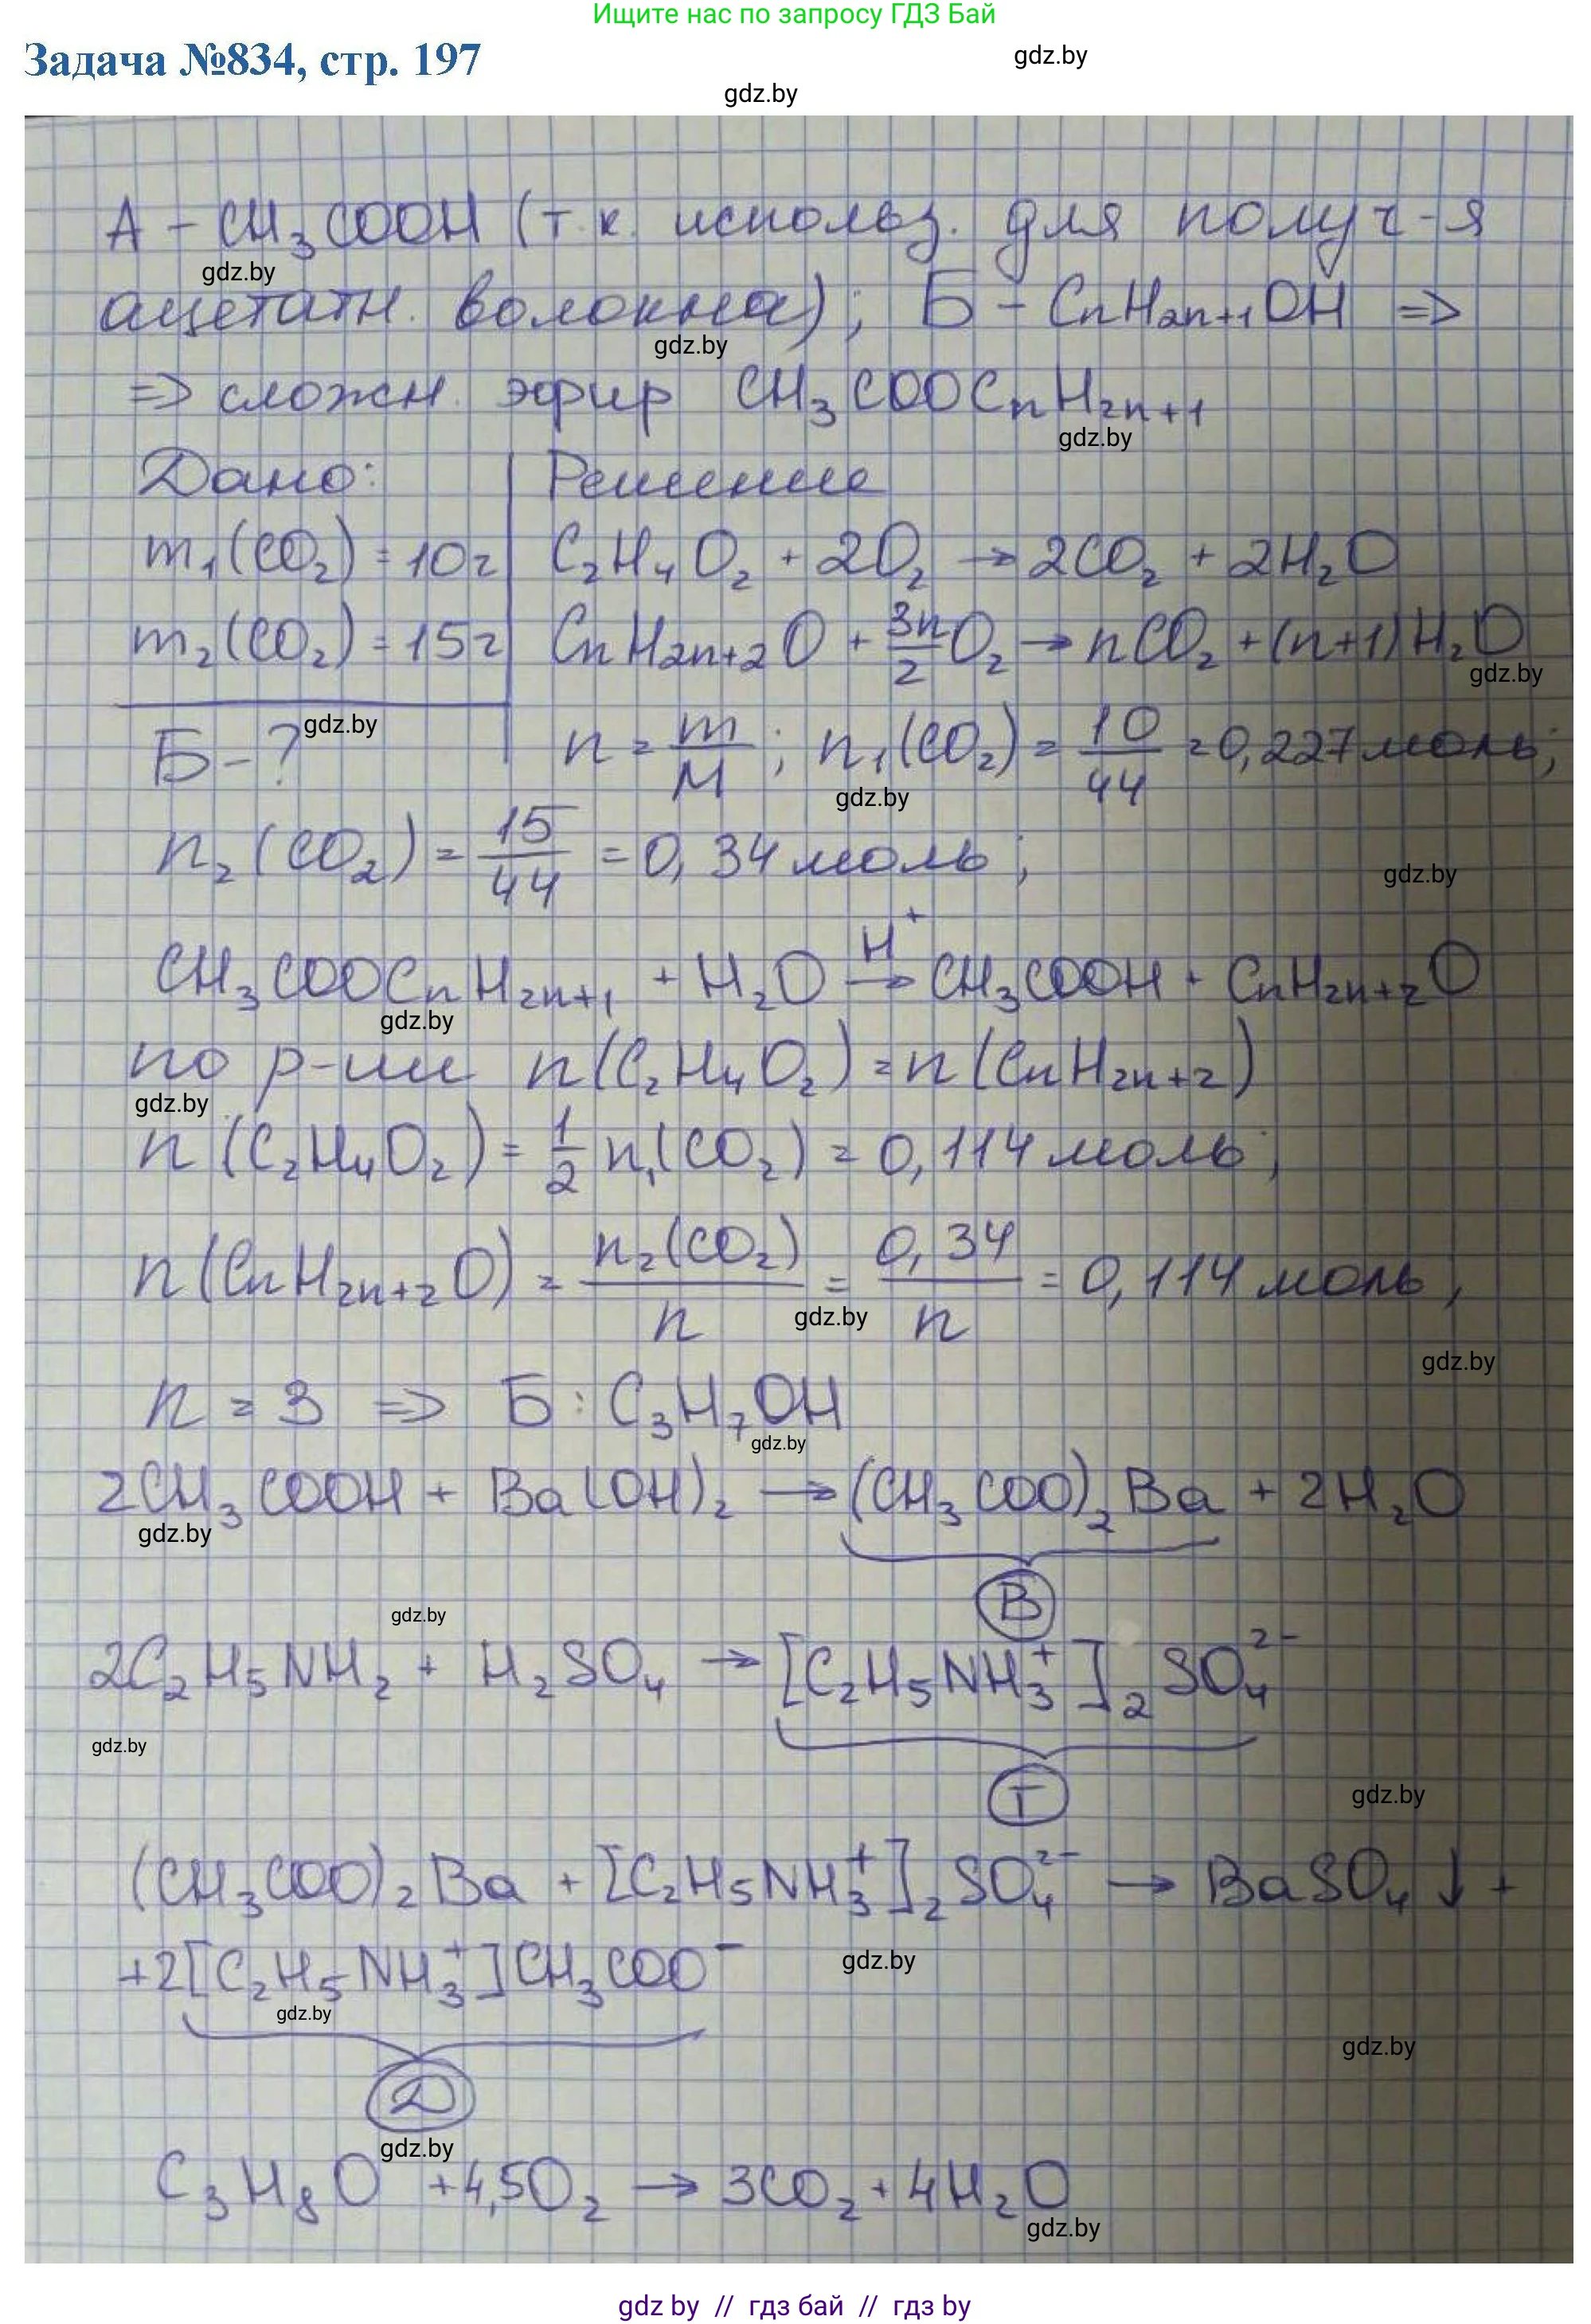 Ищите нас по запросу ГДЗ Бай
Задача №834, стр. 197
gdz.by
gdz.by
А – CH₃COOH (т.к. использ. для получ-я
gdz.by
ацетатн. волокна); Б – CnH₂n₊₁OH =>
gdz.by
=> сложн. эфир CH₃COOCnH₂n₊₁
gdz.by
Дано: Решение
m₁(CO₂) = 10г C₂H₄O₂ + 2O₂ → 2CO₂ + 2H₂O
m₂(CO₂) = 15г CnH₂n₊₂O + 3n/2 O₂ → nCO₂ + (n+1)H₂O
gdz.by
gdz.by
Б – ? n = m/M ; n₁(CO₂) = 10/44 = 0,227 моль;
gdz.by
n₂(CO₂) = 15/44 = 0,34 моль ;
gdz.by
CH₃COOCnH₂n₊₁ + H₂O →(H⁺) CH₃COOH + CnH₂n₊₂O
gdz.by
по р-ии n(C₂H₄O₂) = n(CnH₂n₊₂)
gdz.by
n(C₂H₄O₂) = 1/2 n₁(CO₂) = 0,114 моль ;
n(CnH₂n₊₂O) = n₂(CO₂)/n = 0,34/n = 0,114 моль ,
gdz.by
gdz.by
n = 3 => Б : C₃H₇OH
gdz.by
2CH₃COOH + Ba(OH)₂ → (CH₃COO)₂Ba + 2H₂O
gdz.by
В
gdz.by
2C₂H₅NH₂ + H₂SO₄ → [C₂H₅NH₃⁺]₂SO₄²⁻
gdz.by
Г
gdz.by
(CH₃COO)₂Ba + [C₂H₅NH₃⁺]₂SO₄²⁻ → BaSO₄↓ +
+2[C₂H₅NH₃⁺]CH₃COO⁻
gdz.by
gdz.by
gdz.by
Д
gdz.by
C₃H₈O + 4,5O₂ → 3CO₂ + 4H₂O
gdz.by
gdz by // гдз бай // гдз by